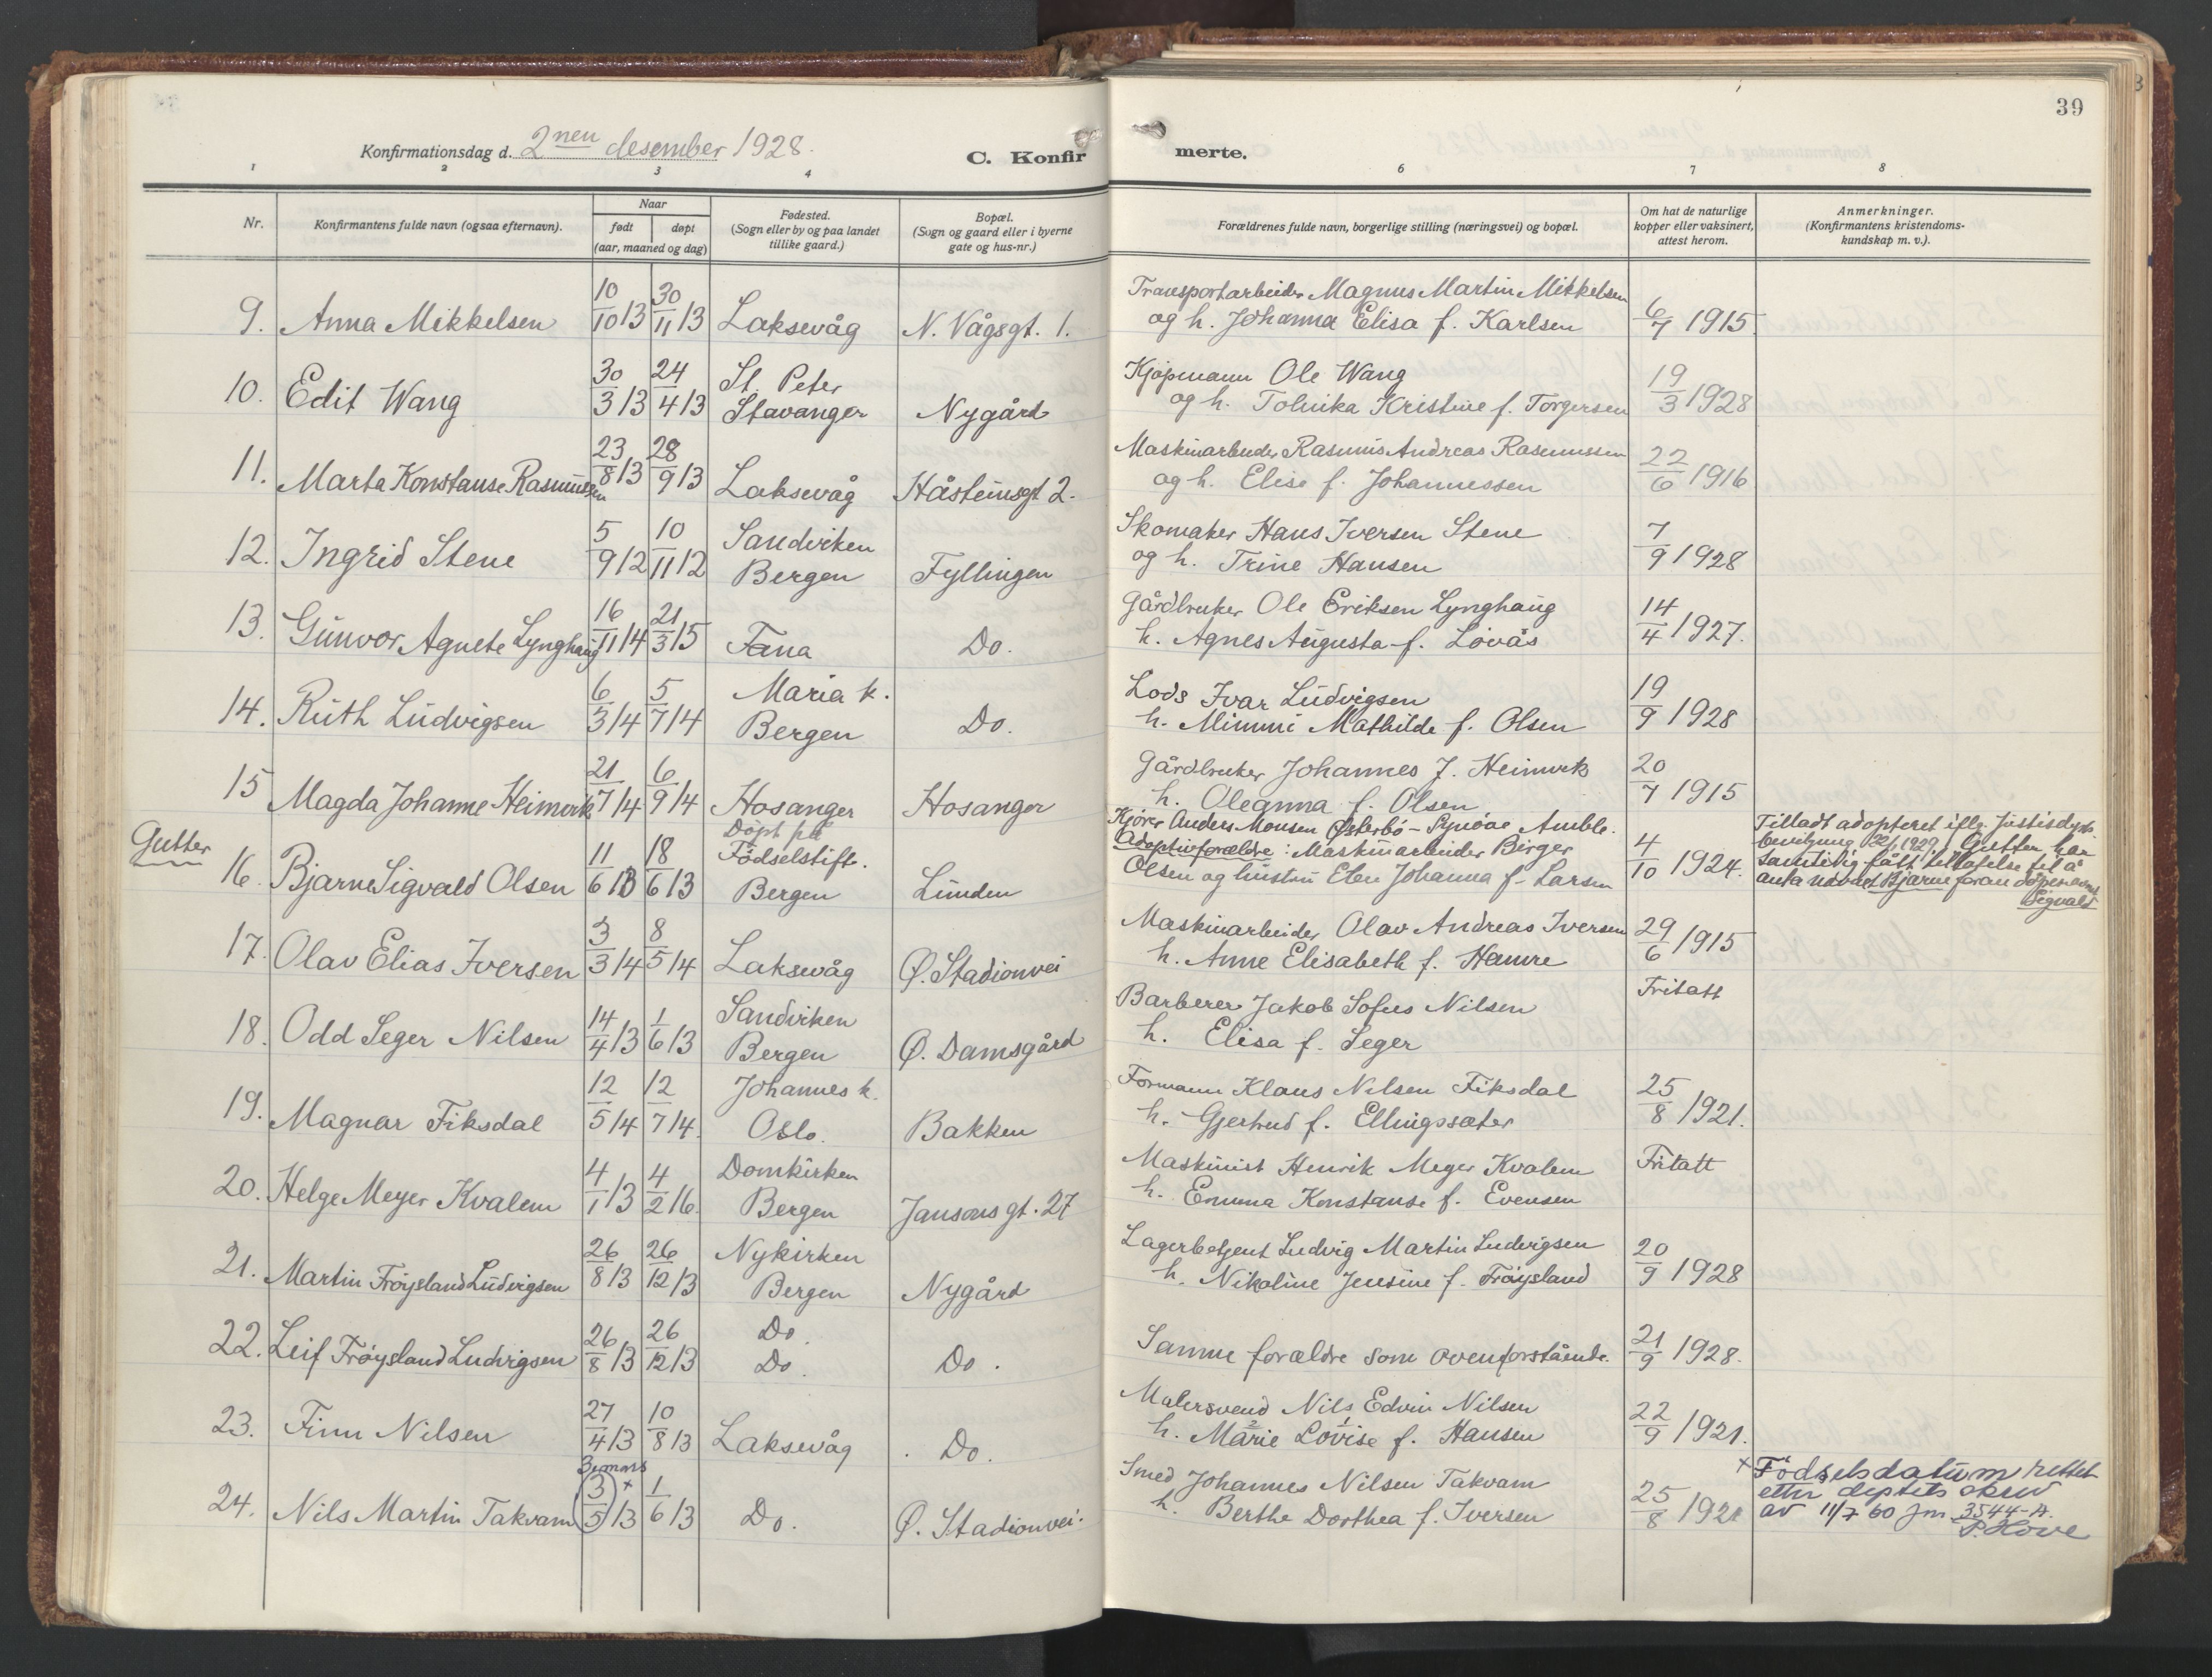 39
Konfirmationsdag d. 2nen desember 1928.
C. Konfirmerte.
1 2 3 4 6 7 8
Nr.
Konfirmantens fulde navn (ogsaa efternavn).
Naar
født
døpt
(aar, maaned og dag)
Fødested.
(Sogn eller by og paa landet
tillike gaard.)
Bopæl.
(Sogn og gaard eller i byerne
gate og hus-nr.)
Forældrenes fulde navn, borgerlige stilling (næringsvei) og bopæl.
Om hat de naturlige
kopper eller vaksinert,
attest herom.
Anmerkninger.
(Konfirmantens kristendoms-
kundskap m. v.).
9. Anna Mikkelsen 10/10 13 30/11 13 Laksevåg N. Vågsgt. 1.
Transportarbeider Magnus Martin Mikkelsen
og h. Johanna Elisa f. Karlsen 6/7 1915.
10. Edit Wang 30/3 13 24/4 13 St. Peter
Stavanger Nygård
Kjøpmann Ole Wang
og h. Tolnika Kristine f. Torgersen 19/3 1928
11. Marta Konstanse Rasmussen 23/8 13 28/9 13 Laksevåg Håsteinsgt 2.
Maskinarbeider Rasmus Andreas Rasmussen
og h. Elise f. Johannessen 22/6 1916
12. Ingrid Stene 5/9 12 10/11 12 Sandviken
Bergen Fyllingen
Skomaker Hans Iversen Stene
og h. Trine Hansen 7/9 1928
13. Gunvor Agnete Lynghaug 16/11 14 21/3 15 Fana Do.
Gårdbruker Ole Eriksen Lynghaug
h. Agnes Augusta f. Lovås 14/4 1927.
14. Ruth Ludvigsen 6/3 14 5/7 14 Maria k.
Bergen Do.
Lods Ivar Ludvigsen
h. Mimmi Mathilde f. Olsen 19/9 1928
15 Magda Johanne Heimvik 21/7 14 6/9 14 Hosanger Hosanger
Gårdbruker Johannes J. Heimvik
h. Oleanna f. Olsen 20/7 1915
Gutter
16. Bjarne Sigvald Olsen 11/6 13 18/6 13 Döpt på
Födselstift.
Bergen Lunden
Kjører Anders Monsen Østerbö - Synöve Amble.
Adoptivforældre: Maskinarbeider Birger
Olsen og hustru Elen Johanna f. Larsen 4/10 1924.
Tilladt adopteret iflg. Justisdept.
bevilgning 1929. Gutten har
samtidig fått tillatelse til å
anta navnet Bjarne foran döpenavnet
Sigvald
17. Olav Elias Iversen 3/3 14 8/5 14 Laksevåg Ø. Stadionvei
Maskinarbeider Olav Andreas Iversen
h. Anne Elisabeth f. Hamre 29/6 1915
18. Odd Seger Nilsen 14/4 13 1/6 13 Sandviken
Bergen Ø. Damsgård
Barberer Jakob Sofus Nilsen
h. Elisa f. Seger Fritatt
19. Magnar Fiksdal 12/5 14 12/7 14. Johannes k.
Oslo. Bakken
Formann Klaus Nilsen Fiksdal
h. Gjertrud f. Ellingssæter 25/8 1921.
20. Helge Meyer Kvalem 4/1 13 4/2 16. Domkirken
Bergen Jansons gt. 27
Maskinist Henrik Meyer Kvalem
h. Emma Konstanse f. Evensen Fritatt
21. Martin Frøysland Ludvigsen 26/8 13 26/12 13 Nykirken
Bergen Nygård
Lagerbetjent Ludvig Martin Ludvigsen
h. Nikoline Jensine f. Frøysland 20/9 1928
22. Leif Frøysland Ludvigsen 26/8 13 26/12 13 Do.
Do. Do.
Samme forældre som ovenforstående. 21/9 1928.
23. Finn Nilsen 27/4 13 10/8 13 Laksevåg Do.
Malersvend Nils Edvin Nilsen
h. Marie Lovise f. Hansen 22/9 1921.
24. Nils Martin Takvam 3 mars 3/5 13 x 1/6 13 Do. Ø. Stadionvei.
Smed Johannes Nilsen Takvam
h. Berthe Dorthea f. Iversen 25/8 1921
x Födselsdatum rettet
etter deptets skriv
av 11/7 60 Jnr 3544-A.
P. Hove